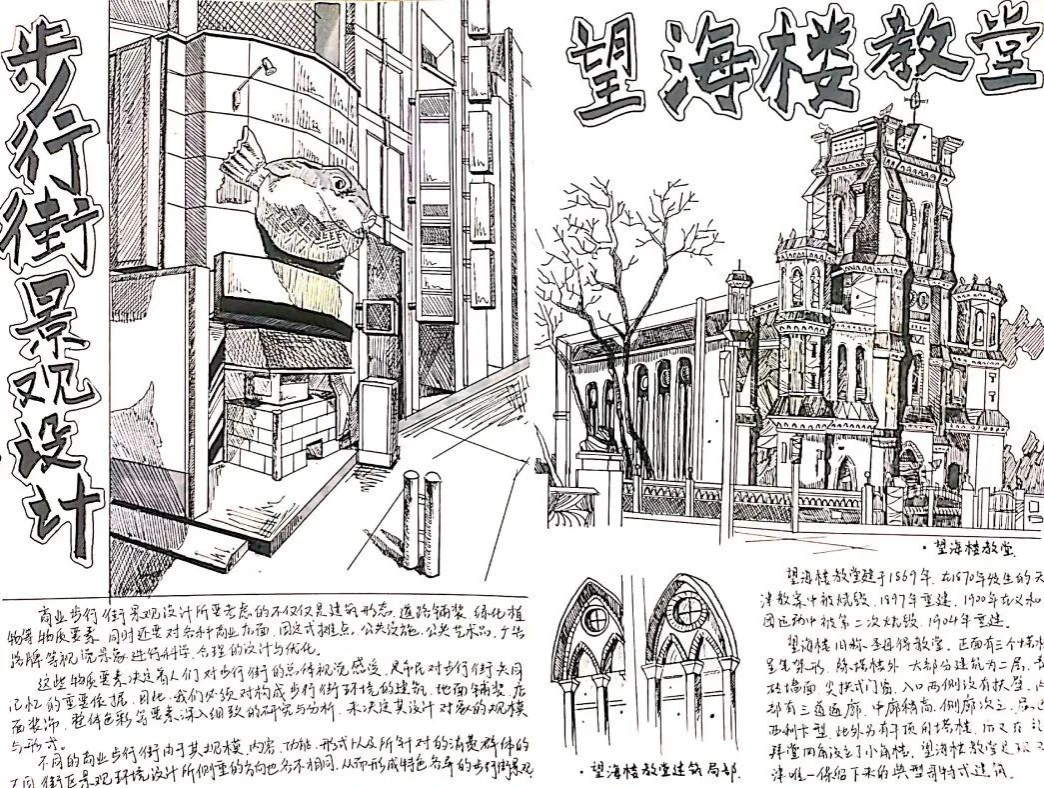 步行街景观设计
商业步行街景观设计所要考虑的不仅仅是建筑形态、道路铺装、绿化植
物等物质要素,同时还要对各种商业店面、固定式摊点、公共设施、公共艺术品、广告
路牌等视觉景象进行科学、合理的设计与优化。
这些物质要素决定着人们对步行街的总体视觉感受,是市民对步行街共同
记忆的重要依据。因此,我们必须对构成步行街环境的建筑、地面铺装、店
面装饰、整体色彩等要素深入细致的研究与分析,来决定其设计对象的规模
与形式。
不同的商业步行街由于其规模、内容、功能、形式以及所针对的消费群体的
不同,街区景观环境设计所侧重的方向也各不相同,从而形成特色各异的步行街景观
望海楼教堂
·望海楼教堂
望海楼教堂建于1869年,在1870年发生的天
津教案中被烧毁,1897年重建,1900年在义和
团运动中被第二次烧毁,1904年重建。
望海楼旧称圣母得胜教堂,正面有三个塔楼
呈笔架形,除塔楼外,大部分建筑为二层,青
砖墙面,尖拱式门窗,入口两侧设有扶壁,内
部有三道通廊,中廊稍高,侧廊次之,属巴
西利卡型,此外另有平顶角塔楼,而又在
拜堂四角设立了小角楼。望海楼教堂是
津唯一保留下来的典型哥特式建筑。
·望海楼教堂建筑局部.